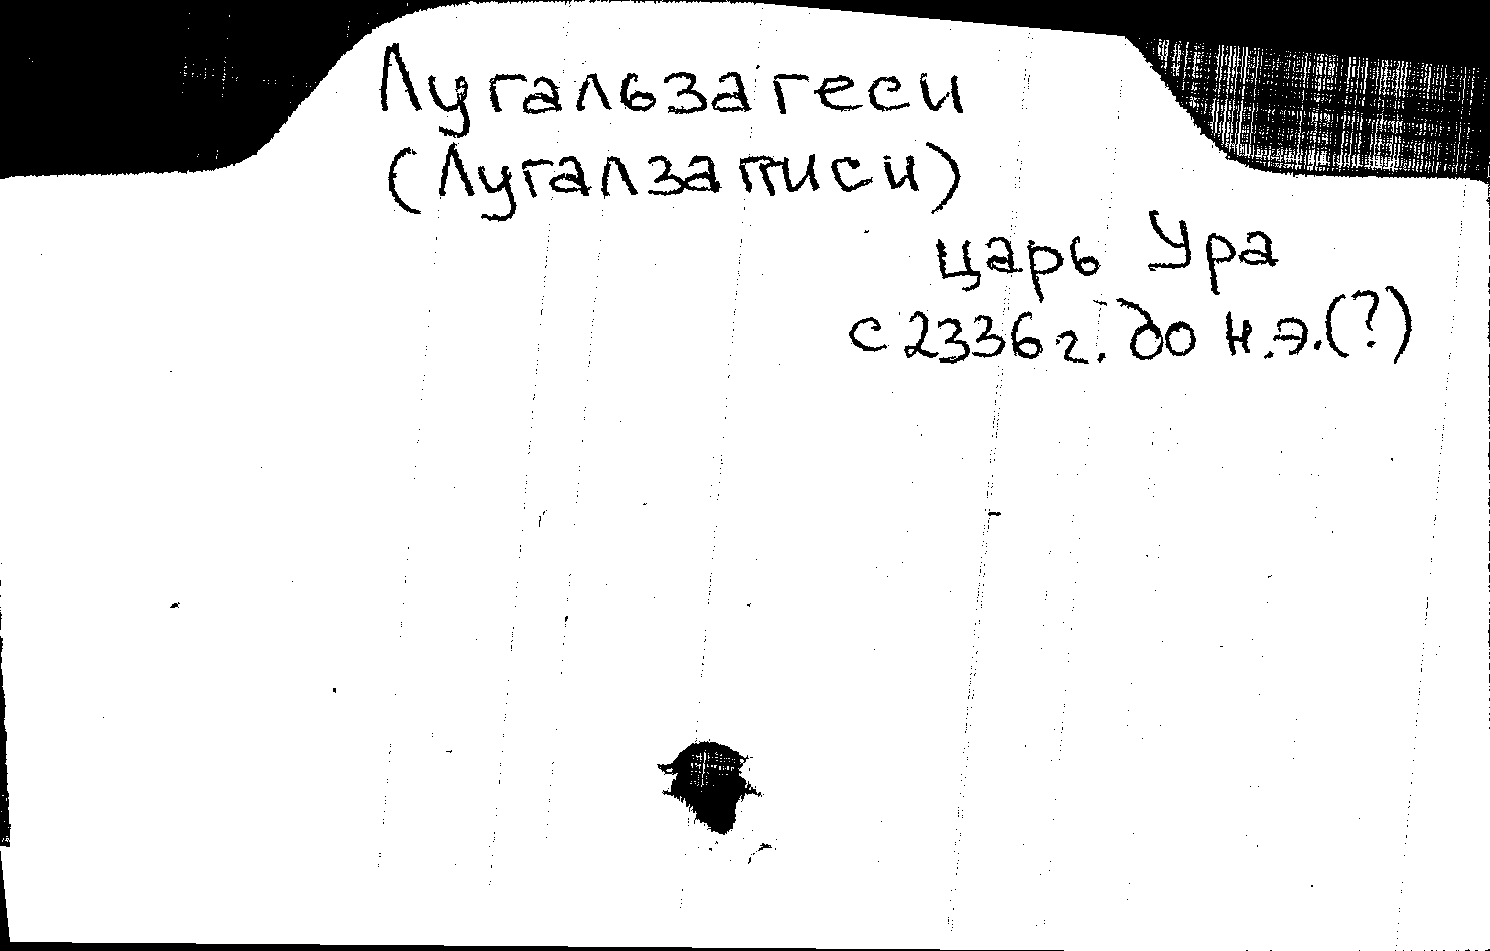 Лугальзагеси
(Лугалзаписи)
царь Ура
с 2336 г. до н.э.(?)